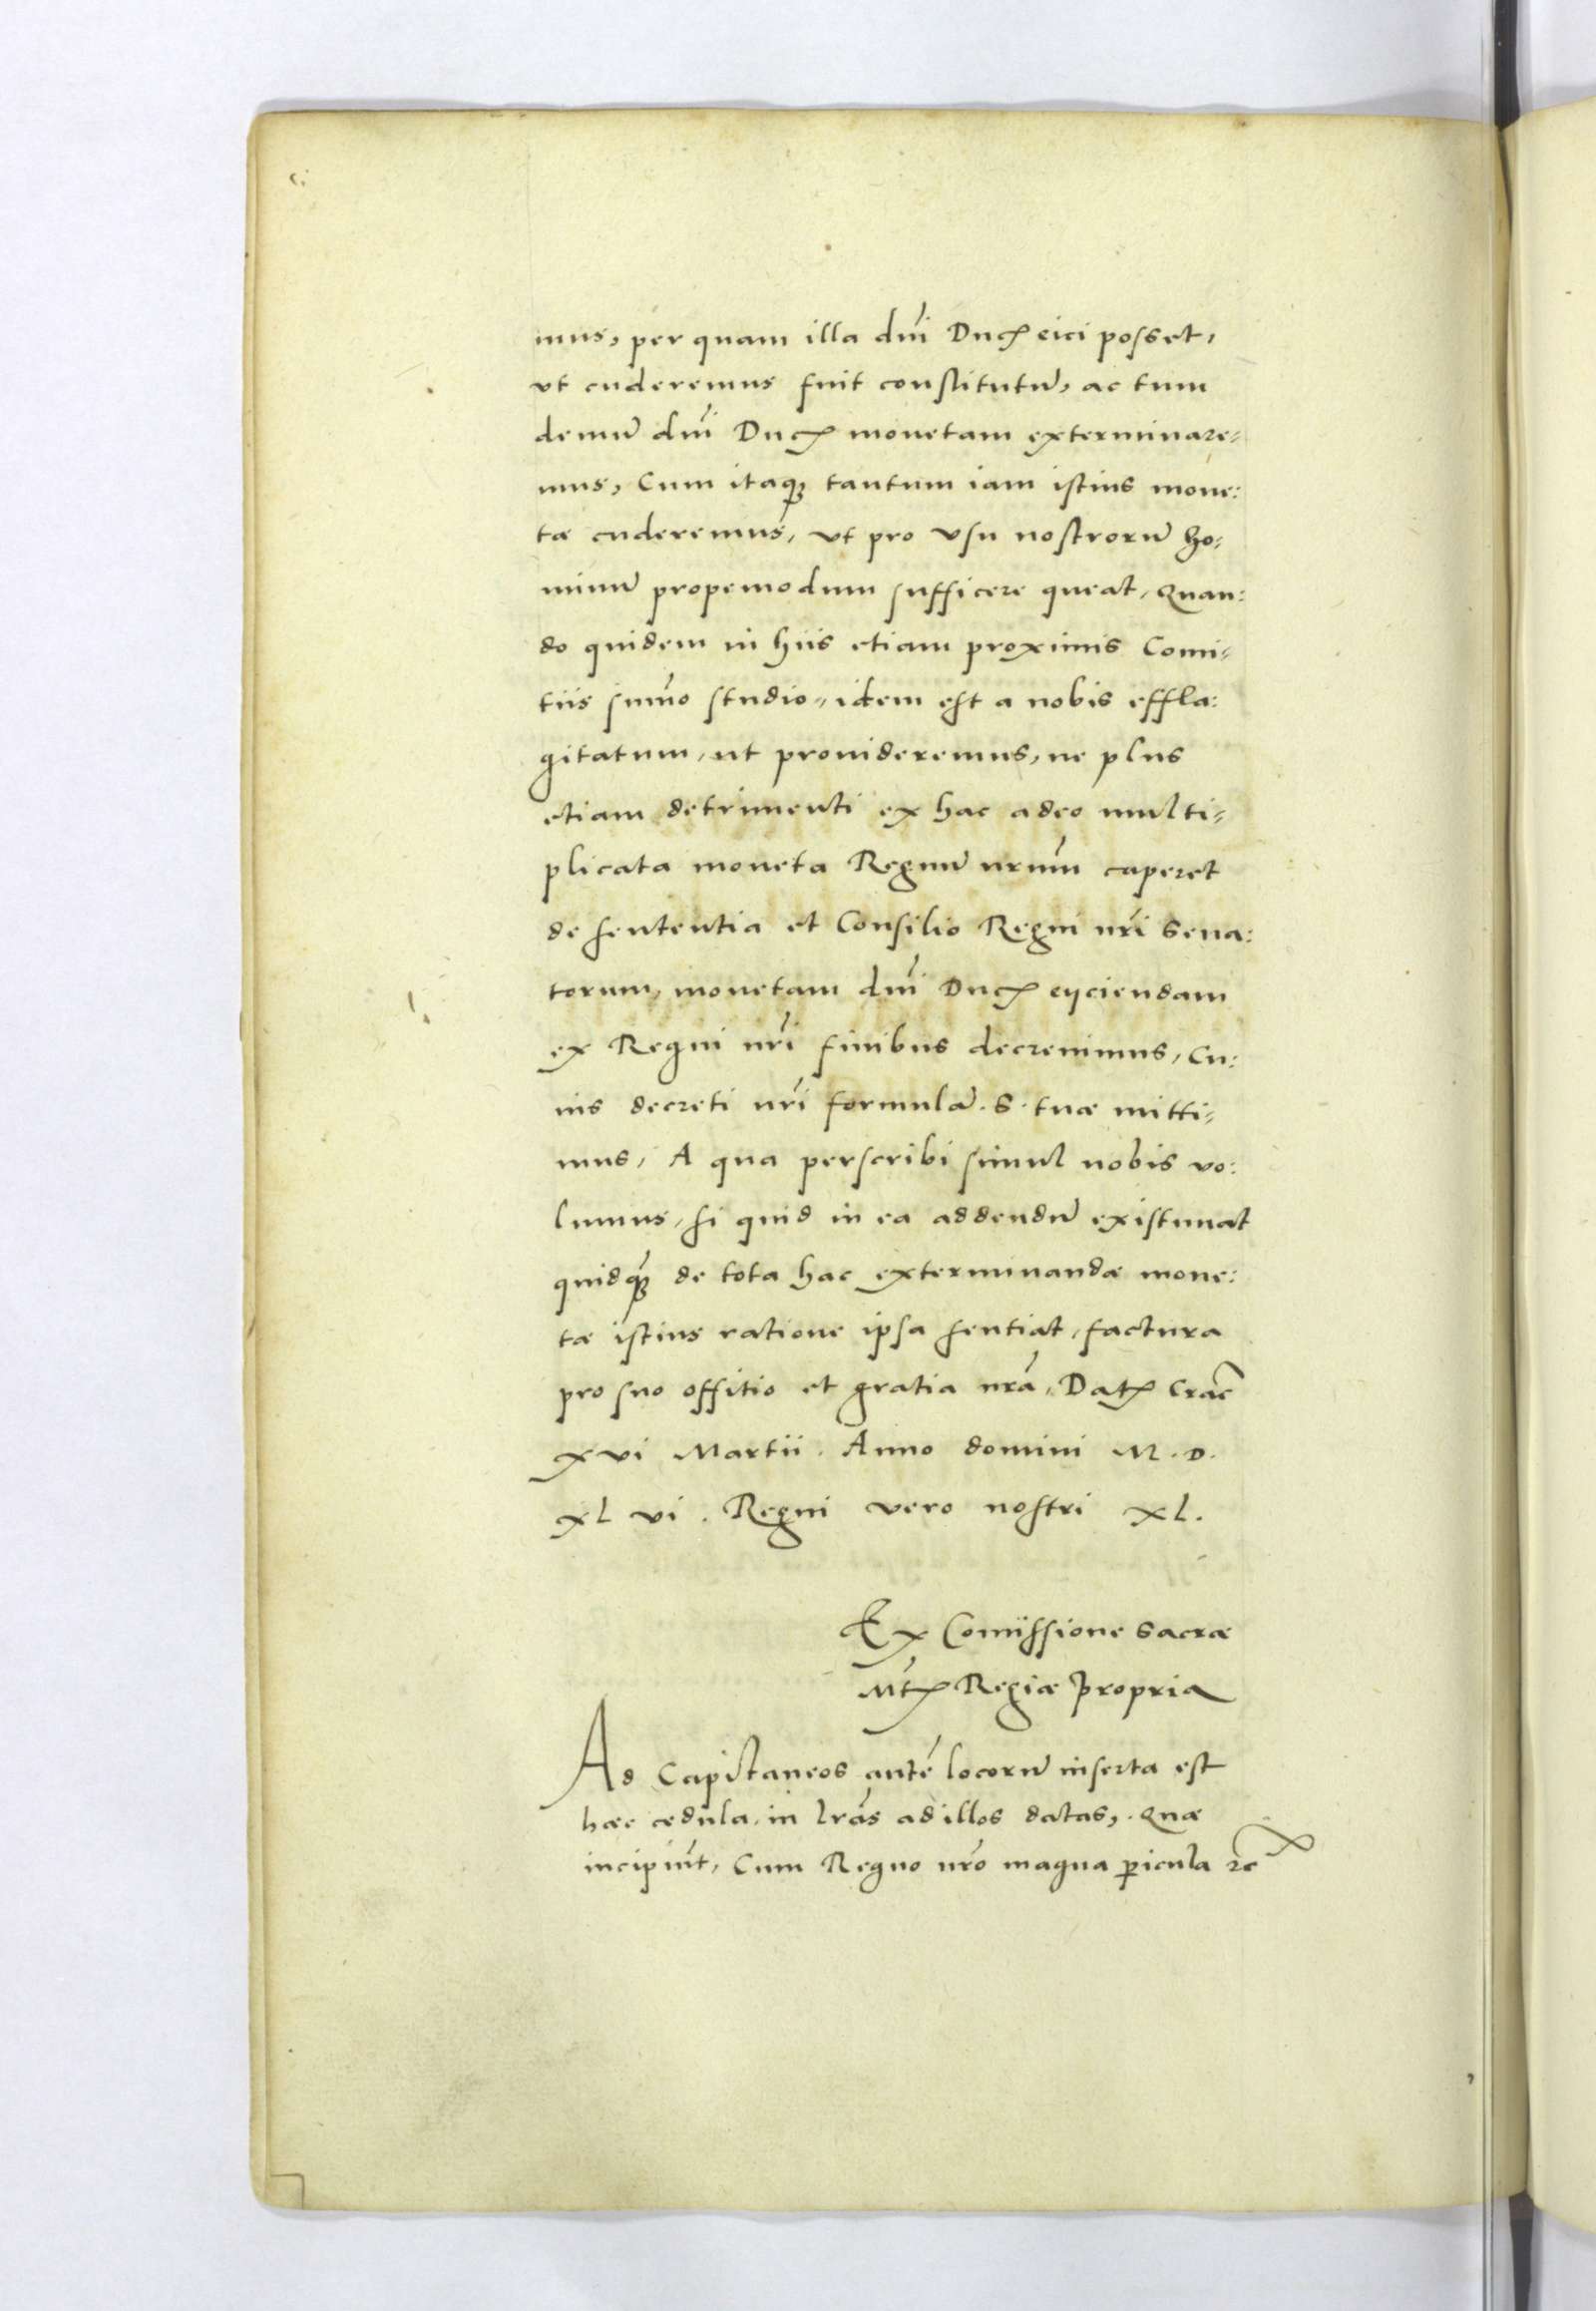 mus, per quam illa dn̄i Duc̄ eici posset,
vt cuderemus fuit constitutū, ac tum
demū dn̄i Duc̄ monetam exterminare-
mus, Cum itaq₃ tantum iam istius mone:
tæ cuderemus, vt pro vsu nostrorū ho:
minū propemodum sufficere queat, Quan:
do quidem in hiis etiam proximis Comi-
tiis sum̄o studio, idem est a nobis effla:
gitatum, ut prouideremus, ne plus
etiam detrimenti ex hac adeo multi-
plicata moneta Regnū nr̄um caperet
de sententia et Consilio Regni nr̄i Sena:
torum, monetam dn̄i Duc̄ eijciendam
ex Regni nr̄i finibus decreuimus, Cu:
ius decreti nr̄i formulā. S. tuæ mitti-
mus, A qua perscribi simul nobis vo:
lumus, si quid in ea addendū existimat
quidq₃ de tota hac exterminandæ mone:
tæ istius ratione ipsa sentiat, factura
pro suo offitio et gratia nr̄a, Dat̄ Crac̄
xvi Martii. Anno domini M. D.
xl vi. Regni vero nostri xl.
Ex Com̄issione Sacræ
Mt̄ Regiæ propria
Ad Capitaneos autē locorū inserta est
hæc cedula, in lr̄as ad illos datas, Quæ
incipiūt, Cum Regno nr̄o magna pericula ꝛc̄